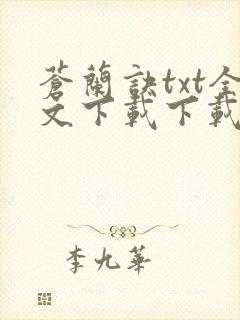 蒼蘭訣txt全
文下載下載
李九華